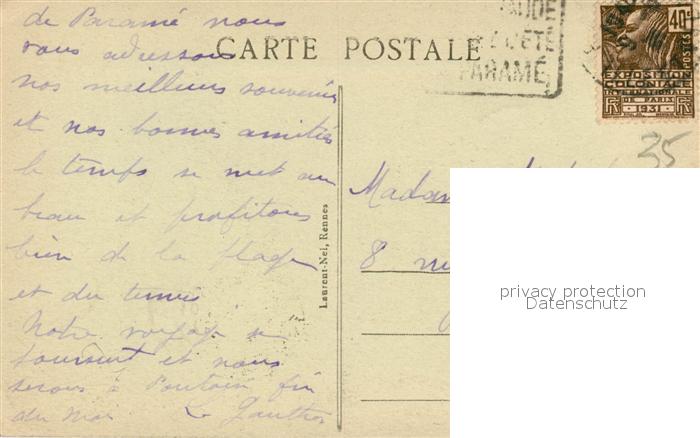 de Paramé nous
vous adressons
nos meilleurs souvenirs
et nos bonnes amitiés
le temps se met au
beau et profitons
bien de la plage
et du tennis
Notre voyage se
poursuit et nous
serons à fin
du
CARTE POSTALE
PARAMÉ
40c
POSTES
EXPOSITION
COLONIALE
INTERNATIONALE
DE PARIS
1931
35
Laurent-Nel, Rennes
Madam
8
privacy protection
Datenschutz